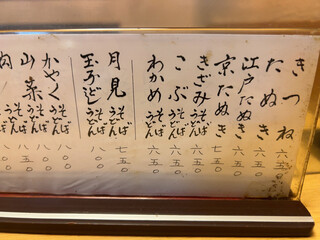 きつね 六五〇
たぬき 六五〇
江戸たぬき 六五〇
京たぬき 六五〇
きざみ そば うどん 六五〇
こぶ そば うどん 六五〇
わかめ そば うどん 六五〇
月見 そば うどん 七五〇
玉子とじ そば うどん 八〇〇
かやく そば うどん 八〇〇
山菜 そば うどん 八〇〇